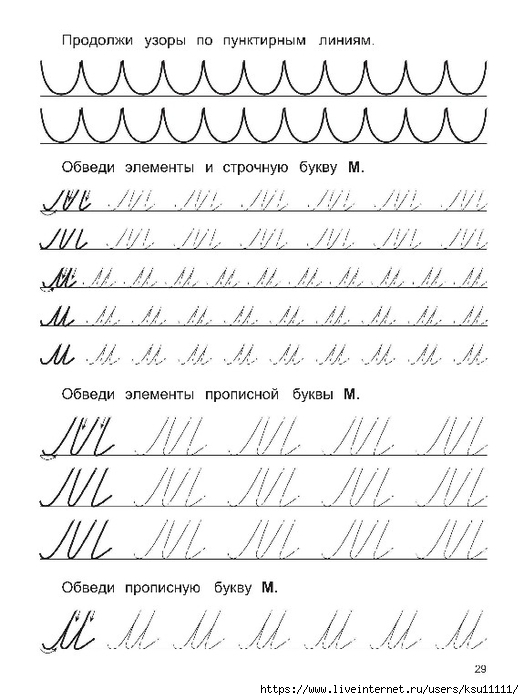 Продолжи узоры по пунктирным линиям.
Обведи элементы и строчную букву М.
Обведи элементы прописной буквы М.
Обведи прописную букву М.
29
https://www.liveinternet.ru/users/ksu11111/